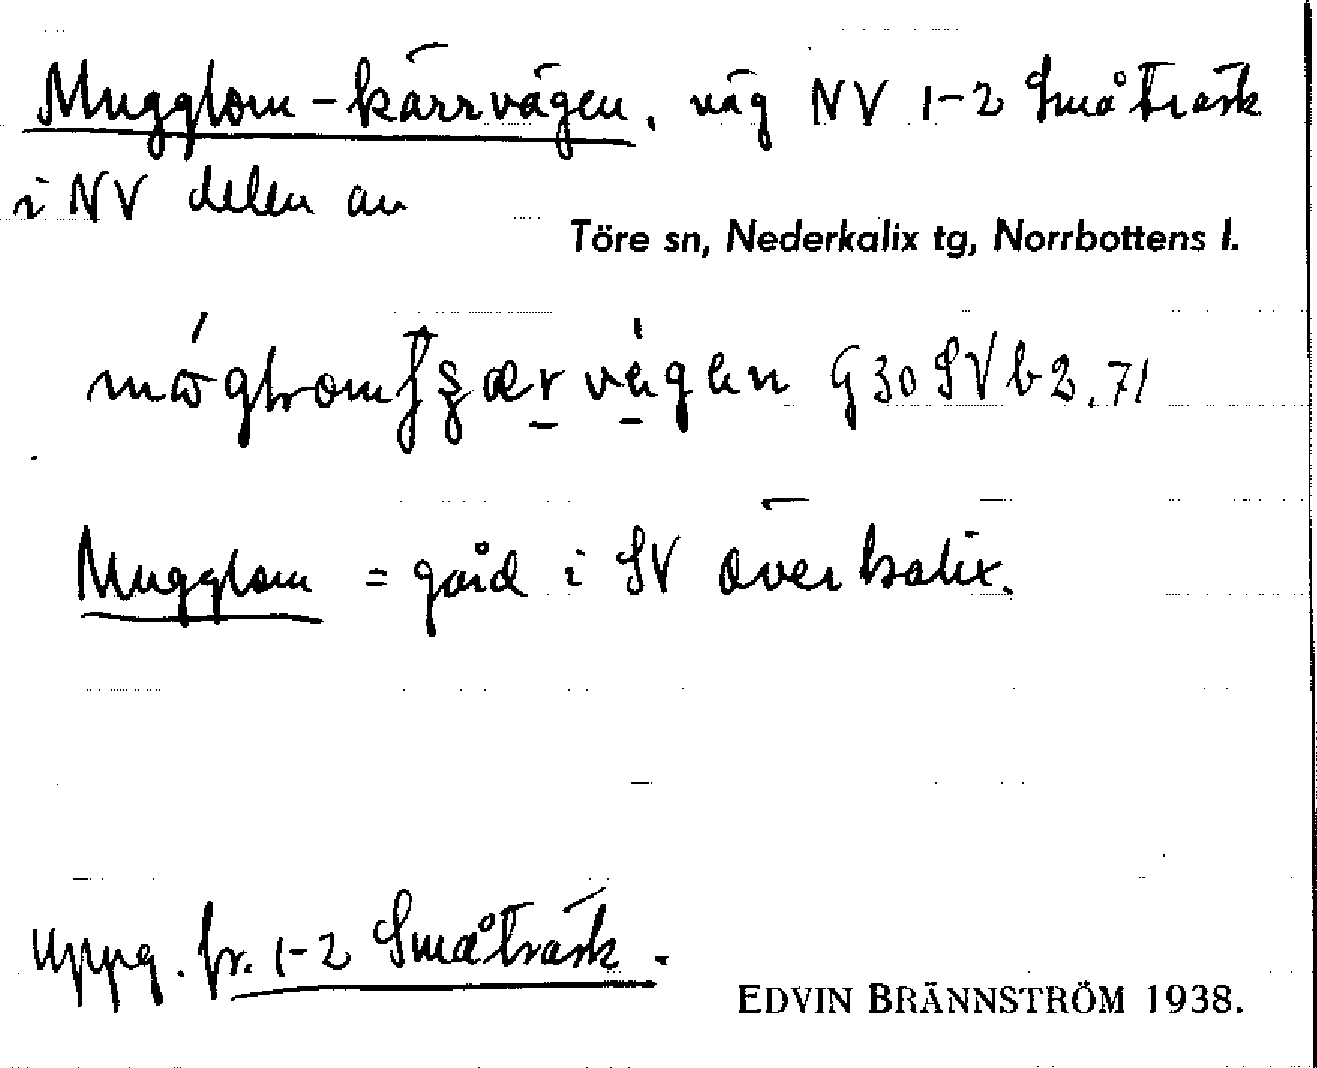 Mugglom-kärrvägen, väg NV 1-2 Småträsk
i NV delen av
Töre sn, Nederkalix tg, Norrbottens l.
G 30 SV b 2.71
Mugglom = gård i SV överkalix.
Uppg. fr. 1-2 Småträsk.
EDVIN BRÄNNSTRÖM 1938.